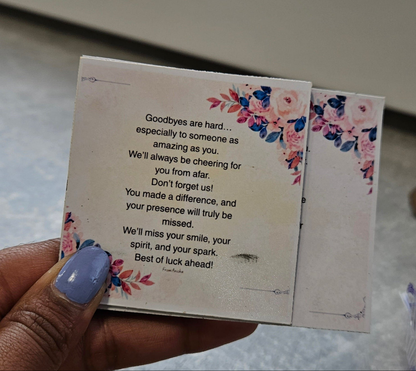 Goodbyes are hard...
especially to someone as
amazing as you.
We'll always be cheering for
you from afar.
Don't forget us!
You made a difference, and
your presence will truly be
missed.
We'll miss your smile, your
spirit, and your spark.
Best of luck ahead!